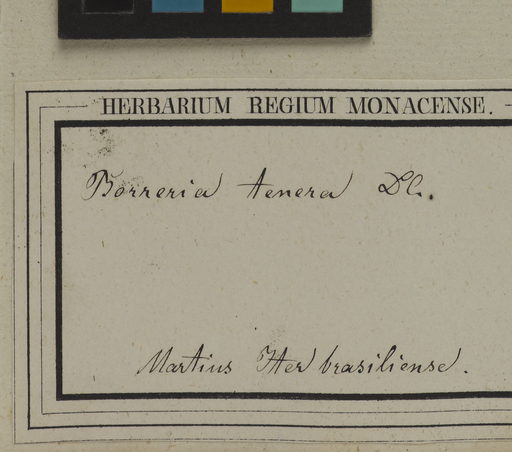 HERBARIUM REGIUM MONACENSE.
Borreria tenera DC.
Martius Iter brasiliense.